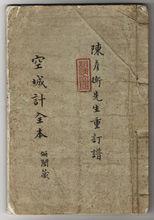 陳彦衡先生重訂譜
空城計全本